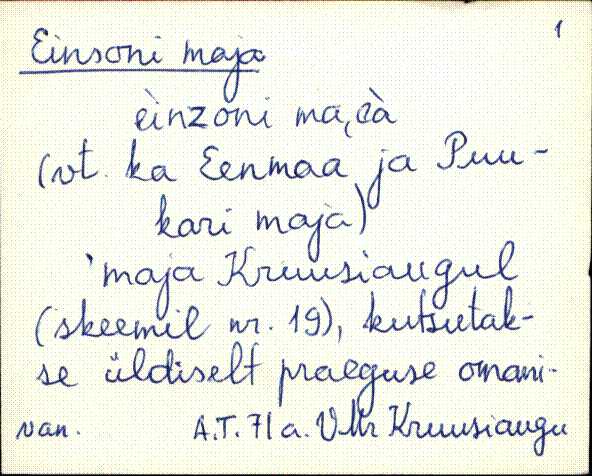 1
Einsoni maja
èinzoni ma,ià
(vt. ka Eenmaa ja Puu-
kari maja)
'maja Kruusiaugul
(skeemil nr. 19), kutsutak-
se üldiselt praeguse omani-
van. A.T. 71 a. VMr Kruusiaugu